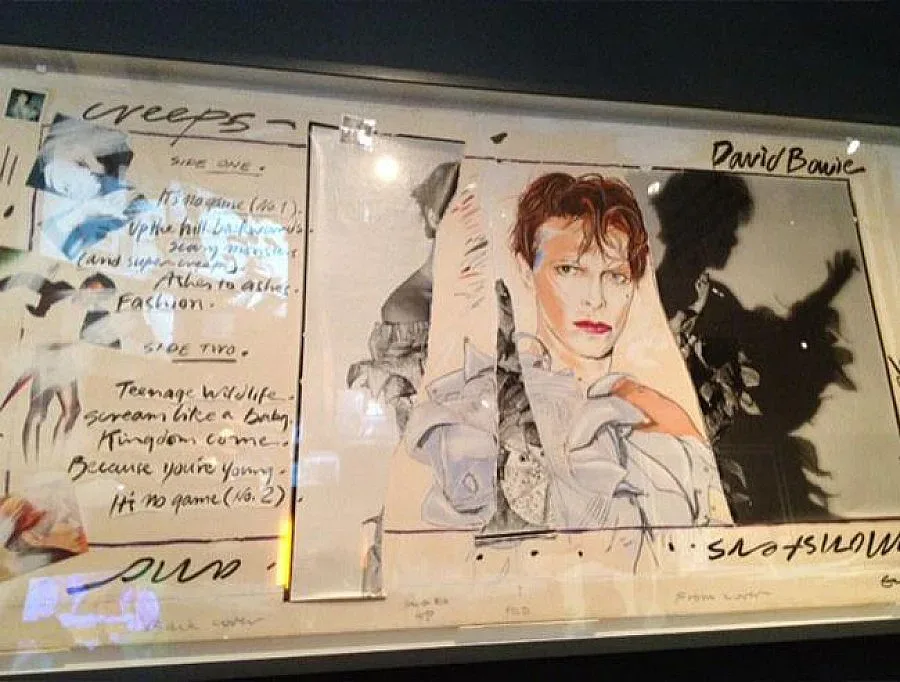 creeps -
SIDE ONE.
It's no game (No. 1).
Up the hill backwards.
scary monsters
(and super creeps).
Ashes to ashes.
Fashion.
SIDE TWO.
Teenage Wildlife.
scream like a baby.
Kingdom come.
Because you're young.
It's no game (No. 2)
and
David Bowie
Monsters
Back cover
FOLD
Front cover